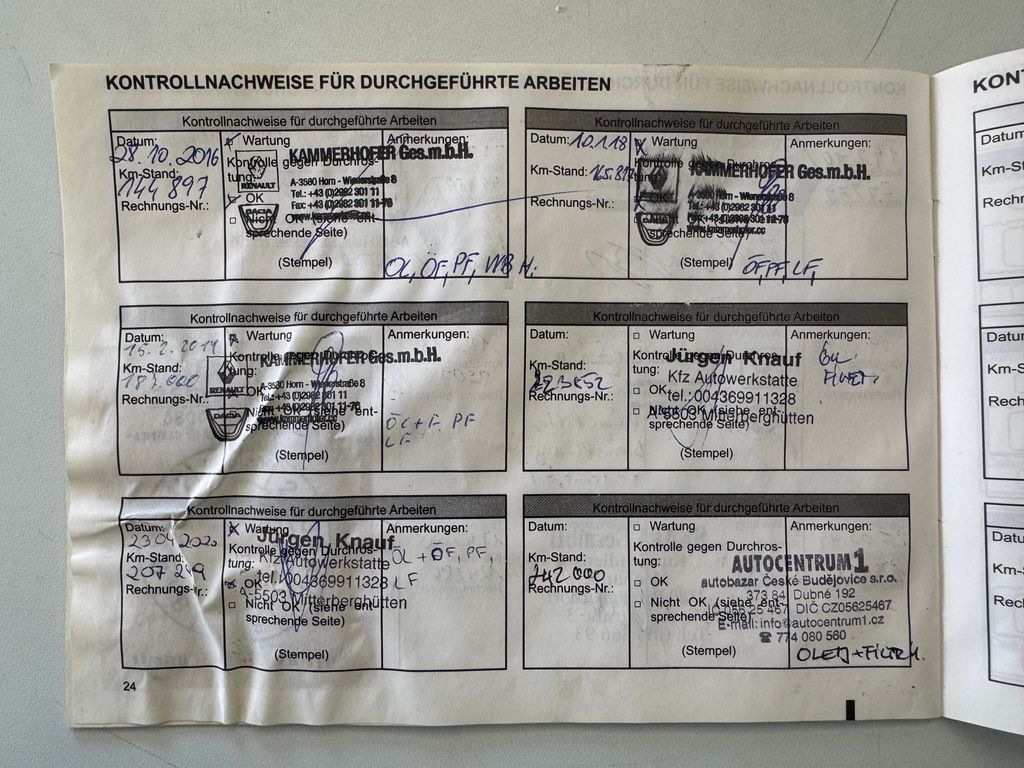 KONTROLLNACHWEISE FÜR DURCHGEFÜHRTE ARBEITEN
Kontrollnachweise für durchgeführte Arbeiten
Datum:
28.10.2016
Km-Stand:
144 897
Rechnungs-Nr.:
Wartung
Kontrolle gegen Durchros-
tung:
OK
Nicht OK (siehe ent-
sprechende Seite)
(Stempel)
KAMMERHOFER Ges.m.b.H.
A-3580 Horn - Wienerstraße 8
Tel.: +43 (0)2982 301 11
Fax: +43 (0)2982 301 11-76
www.kammerhofer.cc
RENAULT
DACIA
Anmerkungen:
ÖL, ÖF, PF,
Kontrollnachweise für durchgeführte Arbeiten
Datum: 10.1.18
Km-Stand:
Rechnungs-Nr.:
Wartung
Kontrolle gegen Durchros-
tung:
OK
Nicht OK (siehe ent-
sprechende Seite)
(Stempel)
KAMMERHOFER Ges.m.b.H.
A-3580 Horn - Wienerstraße 8
Tel.: +43 (0)2982 301 11
Fax: +43 (0)2982 301 11-76
www.kammerhofer.cc
Anmerkungen:
ÖF, PF, LF,
Kontrollnachweise für durchgeführte Arbeiten
Datum:
15.2.2019
Km-Stand:
Rechnungs-Nr.:
Wartung
Kontrolle gegen Durchros-
tung:
OK
Nicht OK (siehe ent-
sprechende Seite)
(Stempel)
KAMMERHOFER Ges.m.b.H.
A-3580 Horn - Wienerstraße 8
Tel.: +43 (0)2982 301 11
Fax: +43 (0)2982 301 11-76
www.kammerhofer.cc
RENAULT
DACIA
Anmerkungen:
ÖL+F PF
LF
Kontrollnachweise für durchgeführte Arbeiten
Datum:
Km-Stand:
Rechnungs-Nr.:
Wartung
Kontrolle gegen Durchros-
tung:
OK
Nicht OK (siehe ent-
sprechende Seite)
(Stempel)
Jürgen Knauf
Kfz Autowerkstatte
tel.:004369911328
A-5503 Mitterberghütten
Anmerkungen:
Kontrollnachweise für durchgeführte Arbeiten
Datum:
23 04 2020
Km-Stand:
Rechnungs-Nr.:
Wartung
Kontrolle gegen Durchros-
tung:
OK
Nicht OK (siehe ent-
sprechende Seite)
(Stempel)
Jürgen Knauf
Kfz Autowerkstatte
tel.:004369911328
A-5503 Mitterberghütten
Anmerkungen:
ÖL + ÖF, PF,
LF
Kontrollnachweise für durchgeführte Arbeiten
Datum:
Km-Stand:
242 000
Rechnungs-Nr.:
Wartung
Kontrolle gegen Durchros-
tung:
OK
Nicht OK (siehe ent-
sprechende Seite)
(Stempel)
Anmerkungen:
AUTOCENTRUM1
autobazar České Budějovice s.r.o.
373 84 Dubné 192
IČ 056 25 467 DIČ CZ05625467
E-mail: info@autocentrum1.cz
☎ 774 080 560
OLEJ + FILTRY.
24
KON
Datum
Km-S
Rechn
Datu
Km-
Rech
Datu
Km-
Rec